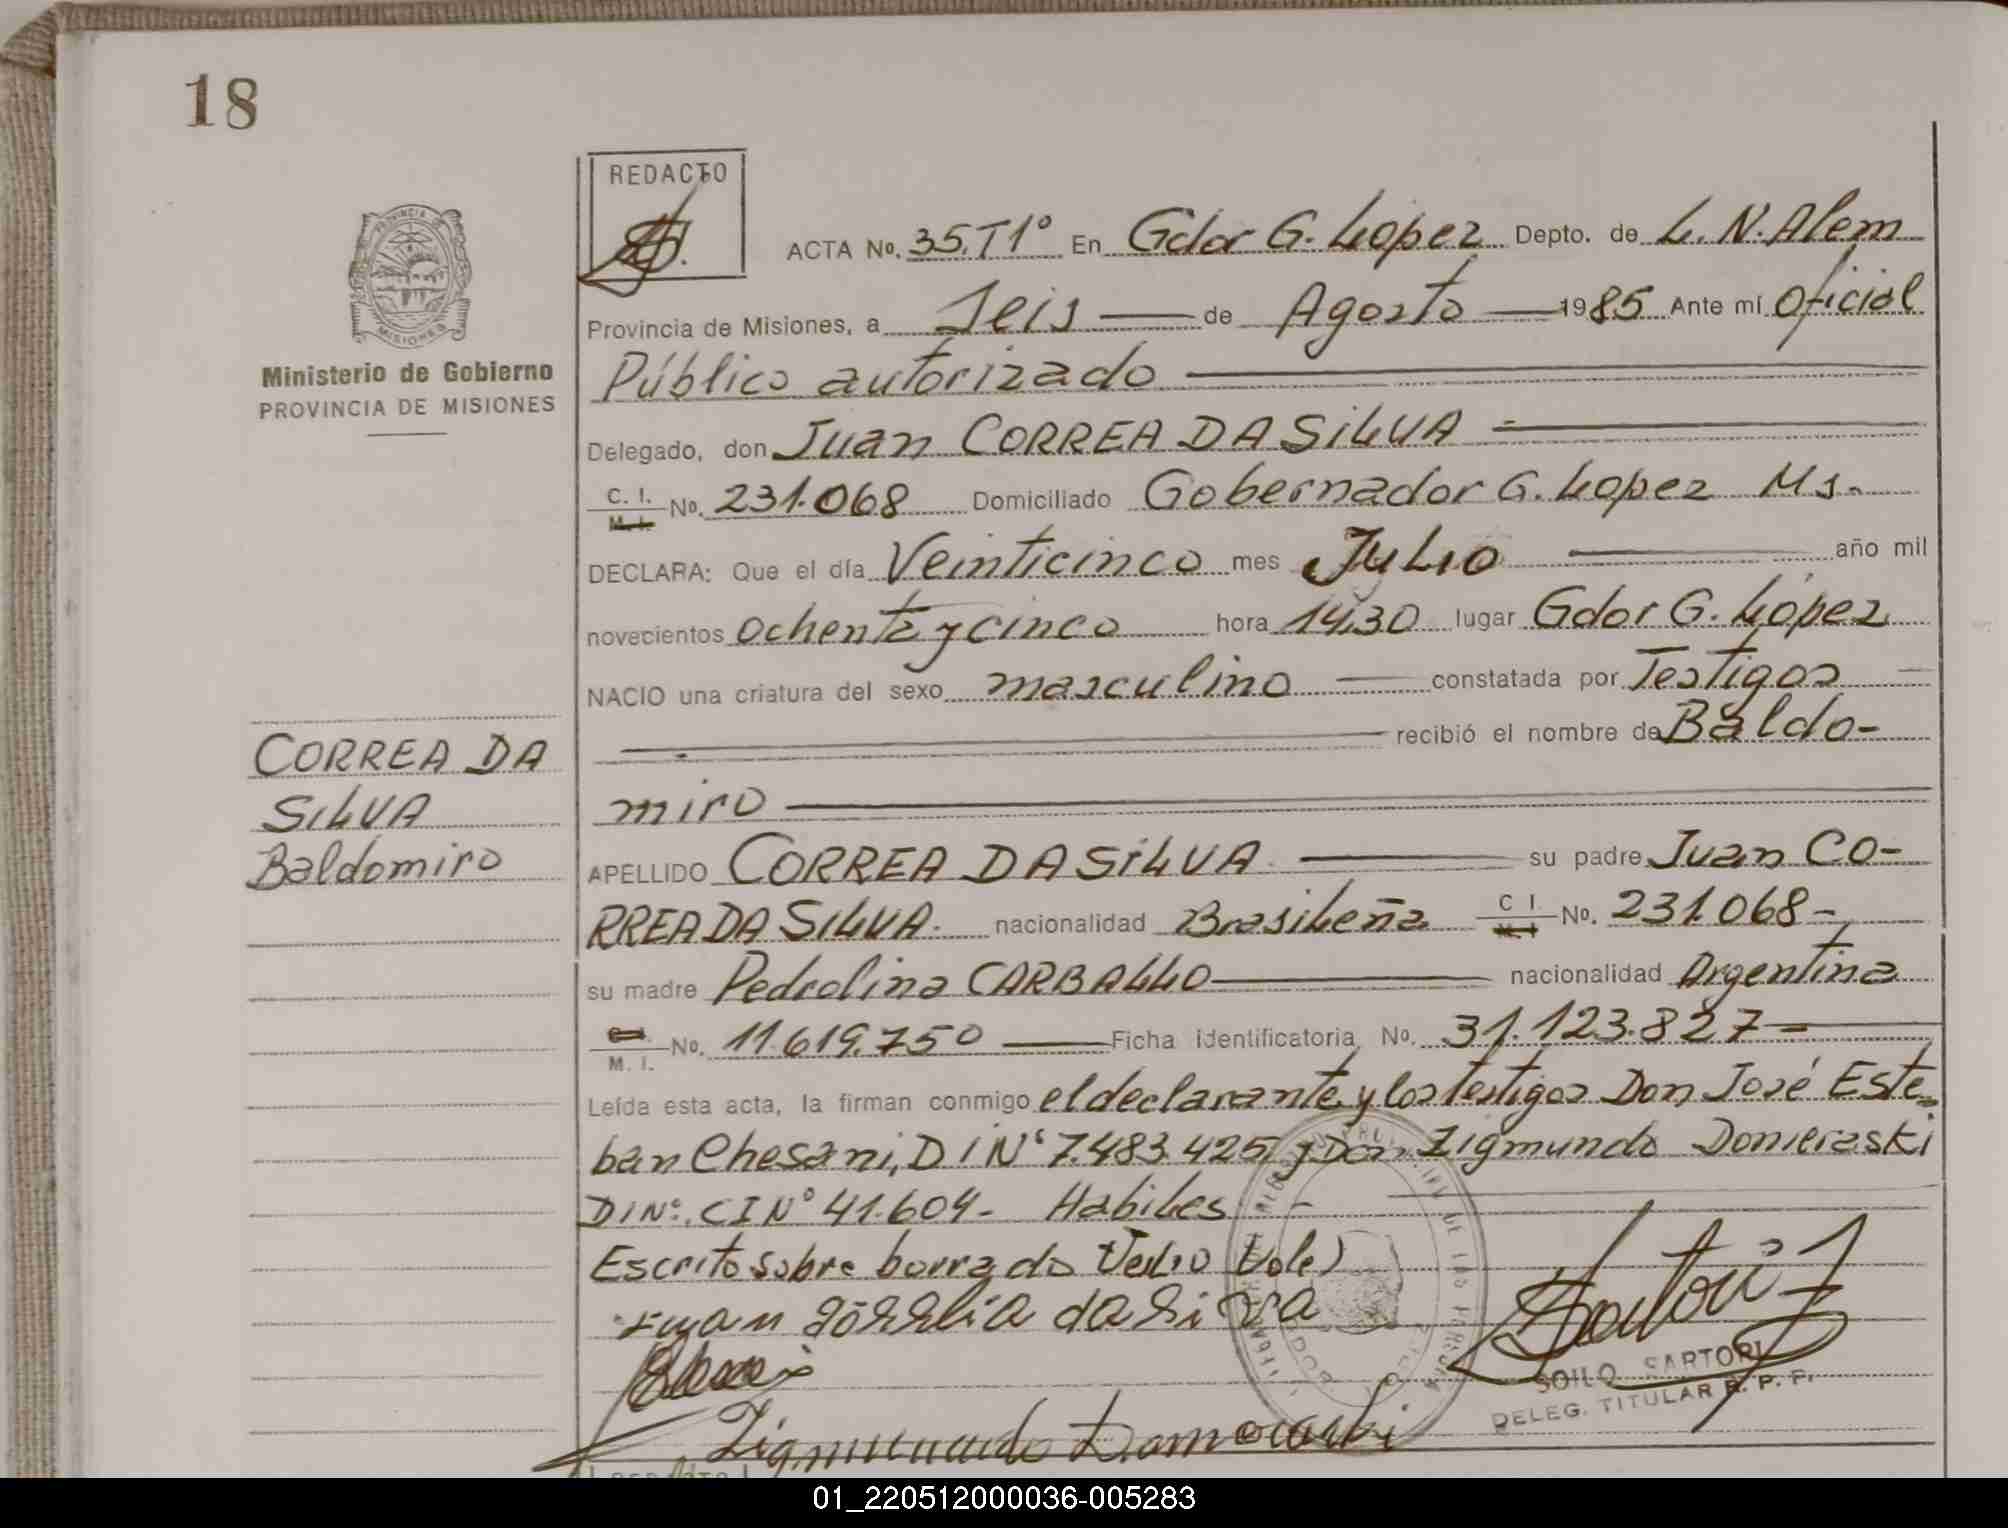 18
REDACTO
PROVINCIA DE MISIONES
Ministerio de Gobierno
PROVINCIA DE MISIONES
ACTA No. 35.T1º En Gdor G. Lopez Depto. de L. N. Alem
Provincia de Misiones, a Seis de Agosto 1985 Ante mí Oficial
Público autorizado
Delegado, don Juan CORREA DA SILVA
C. I. M. I. No. 231.068 Domiciliado Gobernador G. Lopez Ms.
DECLARA: Que el día Veinticinco mes JULIO año mil
novecientos ochenta y cinco hora 14,30 lugar Gdor G. López
NACIO una criatura del sexo masculino constatada por Testigos
recibió el nombre de Baldo-
miro
CORREA DA
SILVA
Baldomiro
APELLIDO CORREA DA SILVA su padre Juan CO-
RREA DA SILVA. nacionalidad Brasileña C I. M I No. 231.068-
su madre Pedrolina CARBALLO nacionalidad Argentina
C. I. M. I. No. 11.619.750 Ficha identificatoria No. 31.123.827-
Leída esta acta, la firman conmigo el declarante y los testigos Don José Este-
ban Chesani, D I Nº 7.483.425 y Don Zigmundo
DINº. CI Nº 41.604- Habiles
Escrito sobre borrado Vale)
Juan da
SOILO SARTORI
DELEG. TITULAR R. P. P.
Zigmundo
01_220512000036-005283